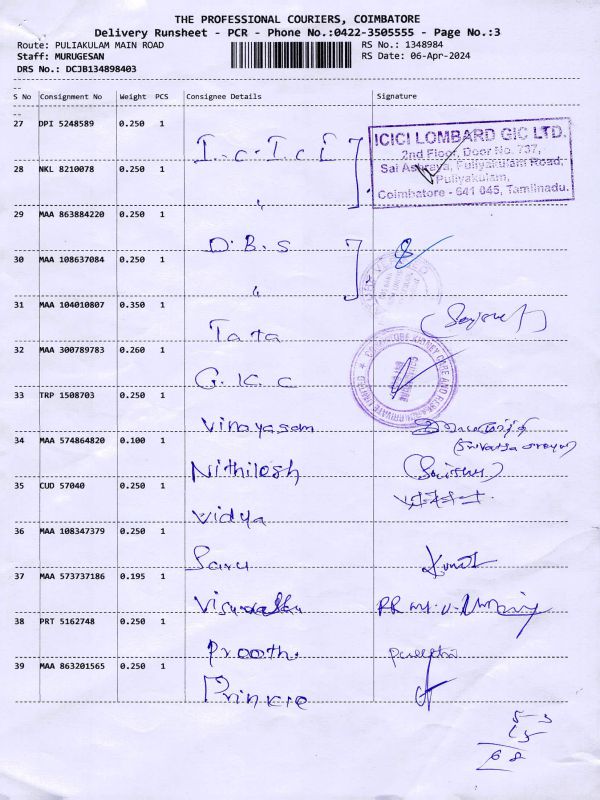 THE PROFESSIONAL COURIERS, COIMBATORE
Delivery Runsheet - PCR - Phone No.:0422-3505555 - Page No.:3
Route: PULIAKULAM MAIN ROAD RS No.: 1348984
Staff: MURUGESAN RS Date: 06-Apr-2024
DRS No.: DCJB134898403
S No Consignment No Weight PCS Consignee Details Signature
27 DPI 5248589 0.250 1
I.C.I.C.I
ICICI LOMBARD GIC LTD.
2nd Floor, Door No. 737,
Sai Ashraya, Puliyakulam Road,
Puliyakulam,
Coimbatore - 641 045, Tamilnadu.
28 NKL 8210078 0.250 1
"
29 MAA 863884220 0.250 1
D.B.S
30 MAA 108637084 0.250 1
"
31 MAA 104010807 0.350 1
Tata
32 MAA 300789783 0.260 1
G.K.C
33 TRP 1508703 0.250 1
Vinayagam
34 MAA 574864820 0.100 1
Nithilesh
35 CUD 57040 0.250 1
Vidya
36 MAA 108347379 0.250 1
Saru
37 MAA 573737186 0.195 1
38 PRT 5162748 0.250 1
39 MAA 863201565 0.250 1
53
15
68